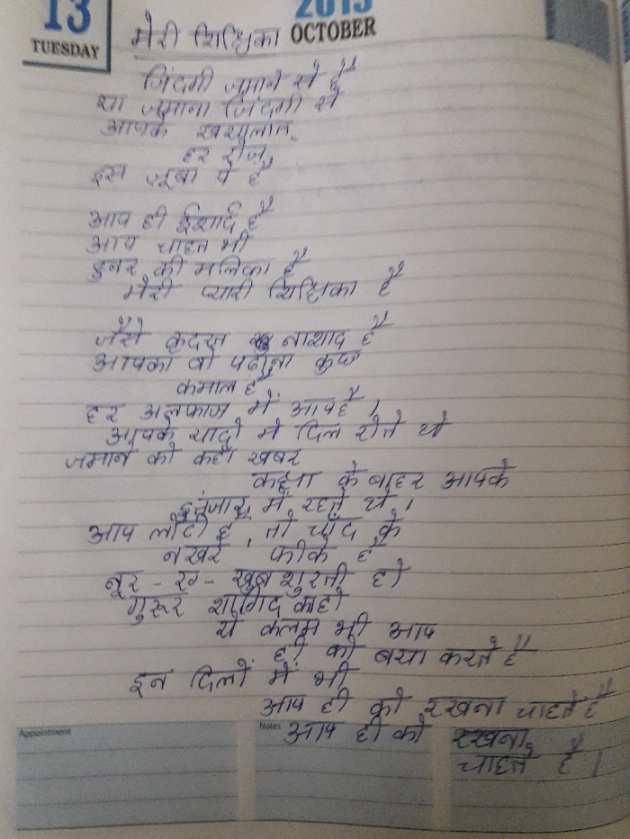 13
TUESDAY
2015
OCTOBER
मेरी शिक्षिका
जिंदगी जमाने से है
या जमाना जिंदगी से
आपके ख्यालात
हर रोज़
इस ज़ुबा पे है
आप ही ईशार्द है
आप चाहत भी
हुनर की मलिका है
मेरी प्यारी शिक्षिका है
जैसे कुदरत नाशाद है
आपका वो पढ़ाना कुछ
कमाल है
हर अलफाज में आप है ।
आपके यादो मे दिल रोते थे
जमाने को कहाँ खबर
कक्षा के बाहर आपके
इन्तजार में रहते थे ।
आप लौटी है, तो चाँद के
नखरे फीके है
नूर - ए - खुबशुरती हो
गुरूर शागिर्द का हो
ये कलम भी आप
ही को बया करते है
इन दिलों में भी
आप ही को रखना चाहते है
आप ही को रखना
चाहते है ।
Appointment
Notes